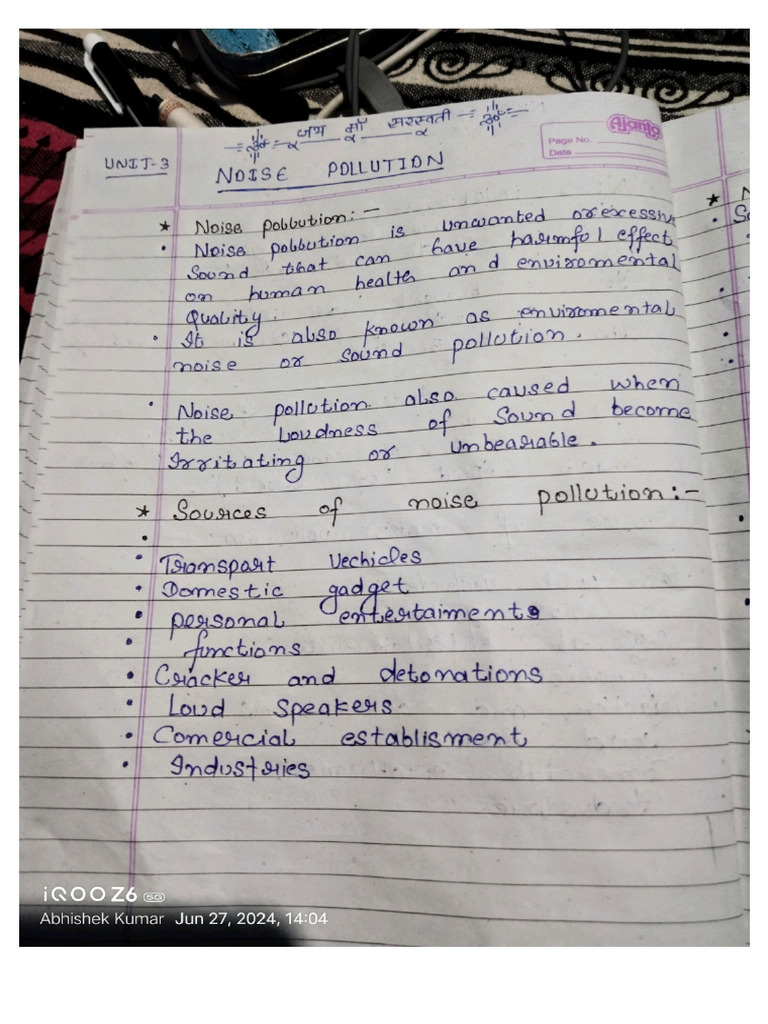 जय माँ सरस्वती
Ajanta
Page No.
Date
UNIT-3
NOISE POLLUTION
* Noise pollution:-
• Noise pollution is unwanted or excessive
Sound that can have harmful effect
on human health and enviromental
Quality.
• It is also known as enviromental
noise or sound pollution.
• Noise pollution also caused when
the Loudness of Sound become
Irritating or unbearable.
* Sources of noise pollution:-
•
• Transpart Vechicles
• Domestic gadget
• personal entertaiments
• functions
• Cracker and detonations
• Loud Speakers
• Comercial establisment
• Industries
iQOO Z6 5G
Abhishek Kumar Jun 27, 2024, 14:04